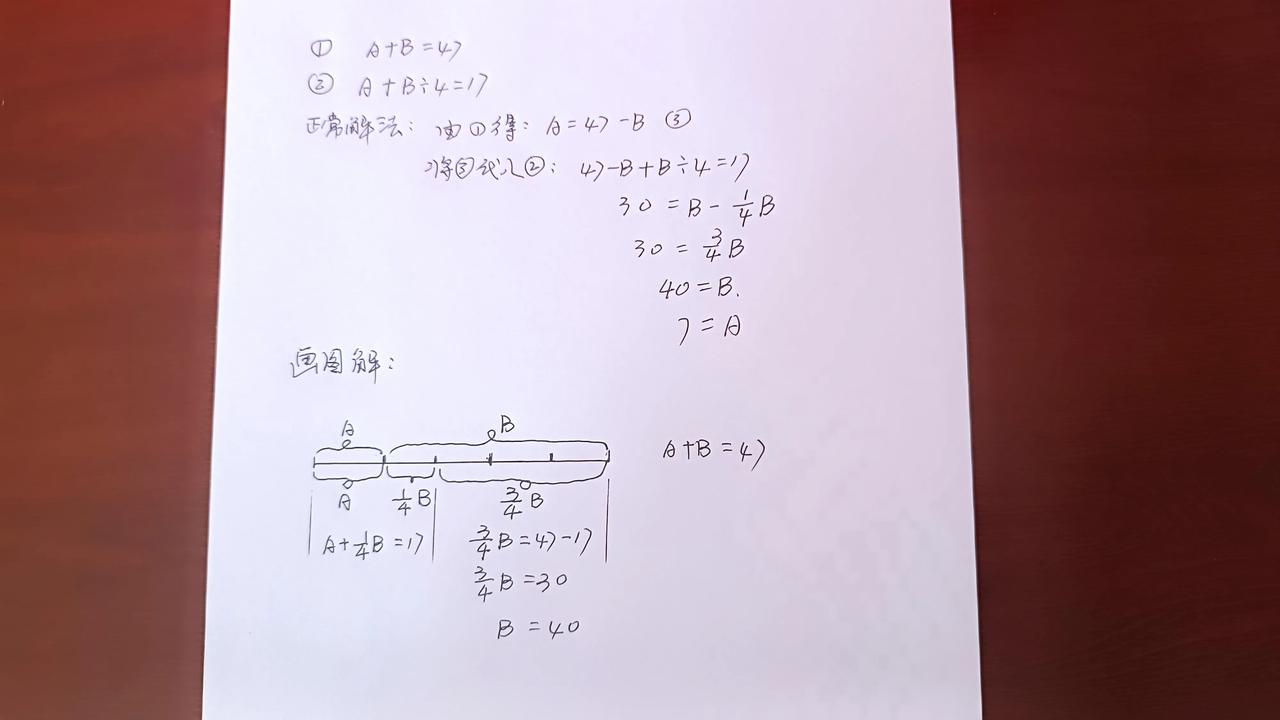 ① A+B=47
② A+B÷4=17
正常解法: 由①得: A=47-B ③
将③代入②: 47-B+B÷4=17
30=B-1/4B
30=3/4B
40=B.
7=A
画图解:
A B
A+B=47
A 1/4B 3/4B
A+1/4B=17 3/4B=47-17
3/4B=30
B=40